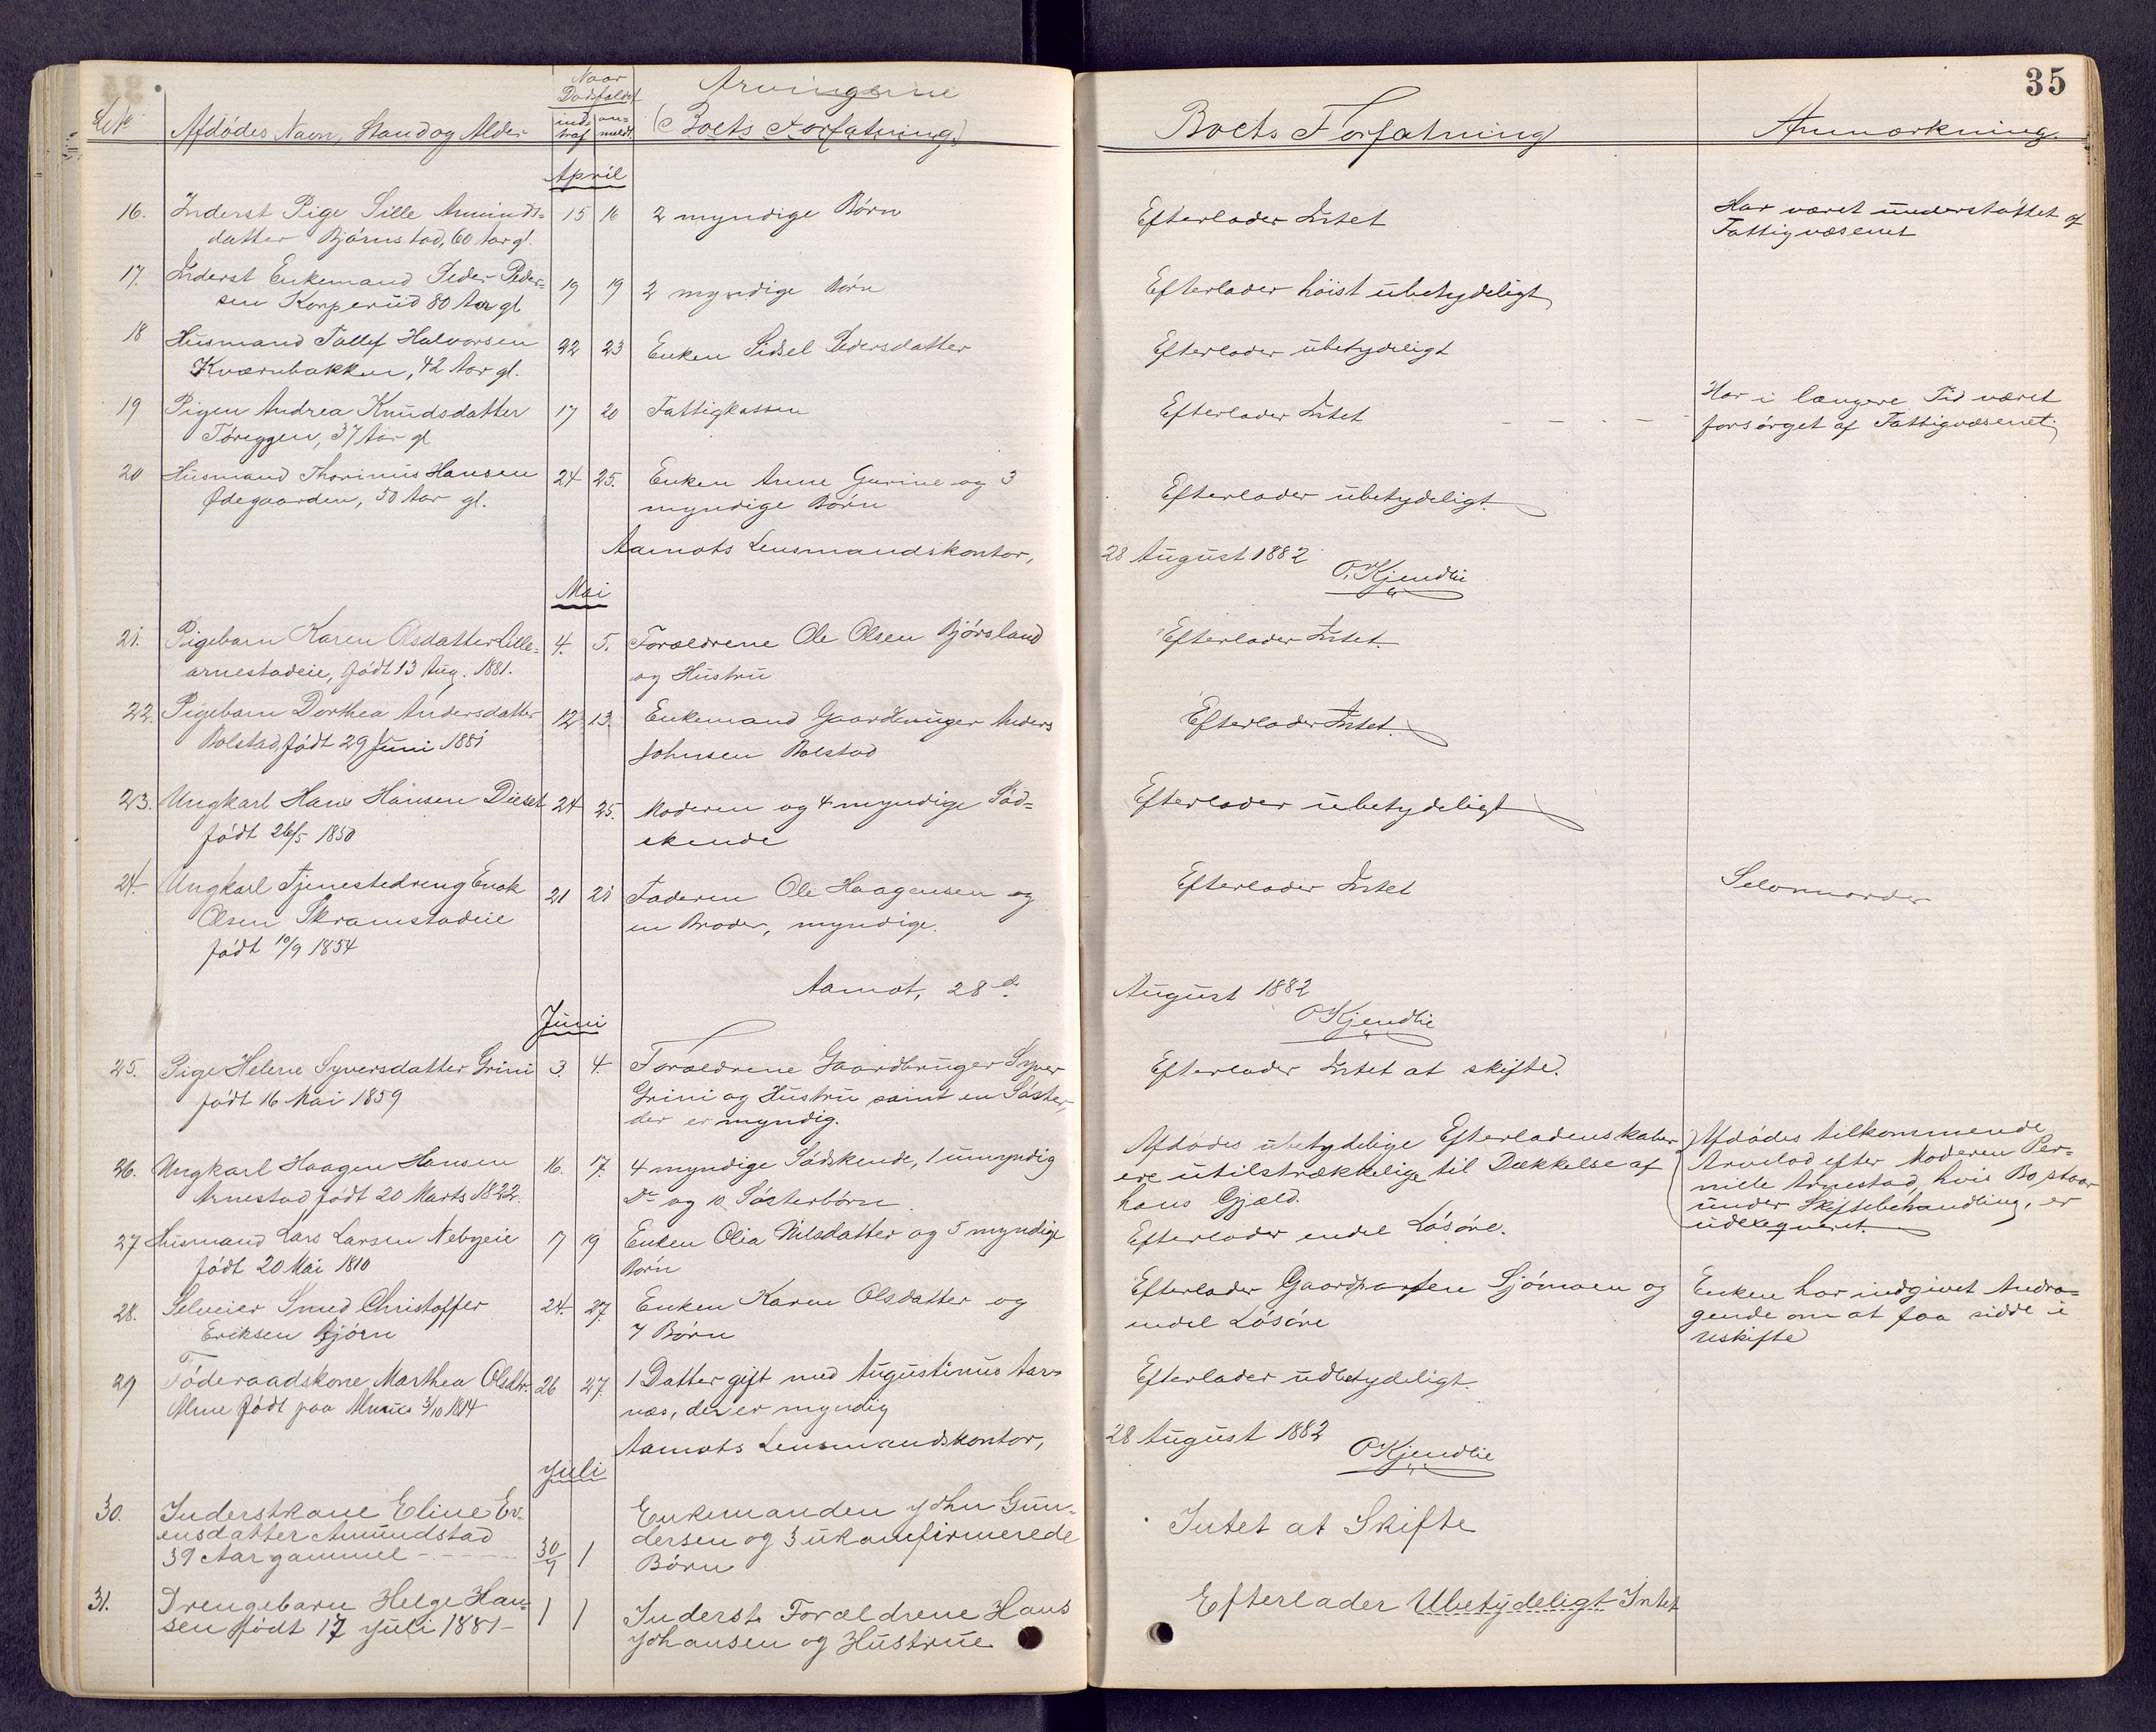 35
Naar
Dødsfaldet
Arvingerne
Lb№
Afdødes Navn, Stand og Alder
ind-
traf
an-
meldt
(Boets Forfatning)
Boets Forfatning
Anmærkning.
April
16. Inderst Pige Sille Amunds- 15 16 2 myndige Børn Efterlader Intet Har været understøttet af
datter Bjørnstad, 60 Aar gl. Fattigvæsenet
17. Inderst Enkemand Peder Peder- 19 19 2 myndige Børn Efterlader høist ubetydeligt
sen Korperud 80 Aar gl
18 Husmand Tollef Halvorsen 22 23 Enken Sidsel Pedersdatter Efterlader ubetydeligt
Kværnbakken, 42 Aar gl.
19 Pigen Andrea Knudsdatter 17 20 Fattigkassen Efterlader Intet - - - - Har i længere Tid været
Tøreggen, 37 Aar gl forsørget af Fattigvæsenet
20 Husmand Thorinus Hansen 24 25. Enken Anne Gurine og 3 Efterlader ubetydeligt
Ødegaarden, 50 Aar gl. myndige Børn
Aamots Lensmandskontor, 28 August 1882
O, Kjendlie
Mai
21. Pigebarn Karen Olsdatter Lille- 4. 5. Forældrene Ole Olsen Bjørsland Efterlader Intet.
arnestadeie, født 13 Aug. 1881. og Hustru
22. Pigebarn Dorthea Andersdatter 12 13. Enkemand Gaardbruger Anders Efterlader Intet.
Bolstad, født 29 Juni 1881 Johnsen Bolstad
23. Ungkarl Hans Hansen Dieset 24 25. Moderen og 4 myndige Sød- Efterlader ubetydeligt
født 26/5 1850 skende
24. Ungkarl Tjenestedreng Enok 21 21 Faderen Ole Haagensen og Efterlader Intet Selvmorder
Olsen Skramstadeie en Broder, myndige.
født 10/9 1854
Aamot, 28d. August 1882
O Kjendlie
Juni
25. Pige Helene Syversdatter Grini 3. 4. Forældrene Gaardbruger Syver Efterlader Intet at skifte.
født 16 Mai 1859 Grini og Hustru samt en Søster,
der er myndig.
26. Ungkarl Haagen Hansen 16. 17. 4 myndige Sødskende, 1 umyndig Afdødes ubetydelige Efterladenskaber Afdødes tilkommende
Arnestad, født 20 Marts 1822. Do og 10 Søsterbørn. ere utilstrækkelige til Dækkelse af Arvelod efter Moderen Per-
hans Gjæld. nille Arnestad, hvis Bo staar
under Skiftebehandling, er
udexequeret.
27 Husmand Lars Larsen Nebyeie 17 19 Enken Olia Nilsdatter og 5 myndige Efterlader endel Løsøre.
født 20 Mai 1810 Børn
28. Selveier Smed Christoffer 24. 27. Enken Karen Olsdatter og Efterlader Gaardparten Sjømoen og Enken har indgivet Andra-
Eriksen Bjørn 7 Børn endel Løsøre gende om at faa sidde i
Uskifte
29 Føderaadskone Marthea Olsdtr. 26 27. 1 Datter gift med Augustinus Aar- Efterlader udbetydeligt.
Alme født paa 3/10 1814 næs, der er myndig
Aamots Lensmandskontor, 28 August 1882
O Kjendlie
Juli
30. Inderstkone Eline Ev- Enkemanden John Gun- Intet at Skifte
ensdatter Amundstad dersen og 3 ukonfirmerede
39 Aar gammel - - - 30/7 1 Børn
31. Drengebarn Helge Han- 1 1 Inderst Forældrene Hans Efterlader Ubetydeligt Intet
sen født 17 Juli 1881 - Johansen og Hustrue